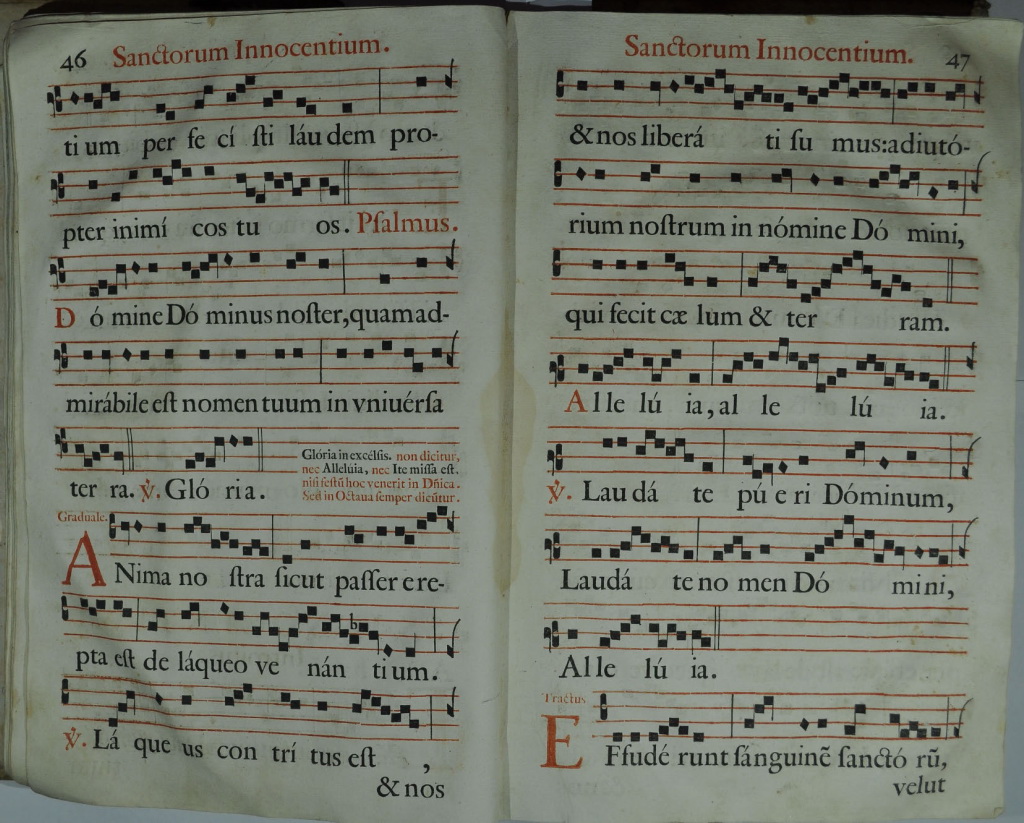 46 Sanctorum Innocentium.
ti um per fe cí ſti láu dem pro-
pter inimí cos tu os. Pſalmus.
D ó mine Dó minus noſter, quam ad-
mirábile eſt nomen tuum in vniuérſa
ter ra. ℣. Gló ria.
Glória in excélſis. non dicitur,
nec Allelúia, nec Ite miſſa eſt.
niſi feſtũ hoc venerit in Dñica.
Sed in Octaua ſemper dicũtur.
Graduale.
ANima no ſtra ſicut paſſer e re-
pta eſt de láqueo ve nán ti um.
℣. Lá que us con trí tus eſt ,
& nos
Sanctorum Innocentium. 47
& nos liberá ti ſu mus: adiutó-
rium noſtrum in nómine Dó mini,
qui fecit cæ lum & ter ram.
Al le lú ia, al le lú ia.
℣. Lau dá te pú e ri Dóminum,
Laudá te no men Dó mini,
Al le lú ia.
Tractus
EFfudé runt ſánguinẽ ſanctó rũ,
velut